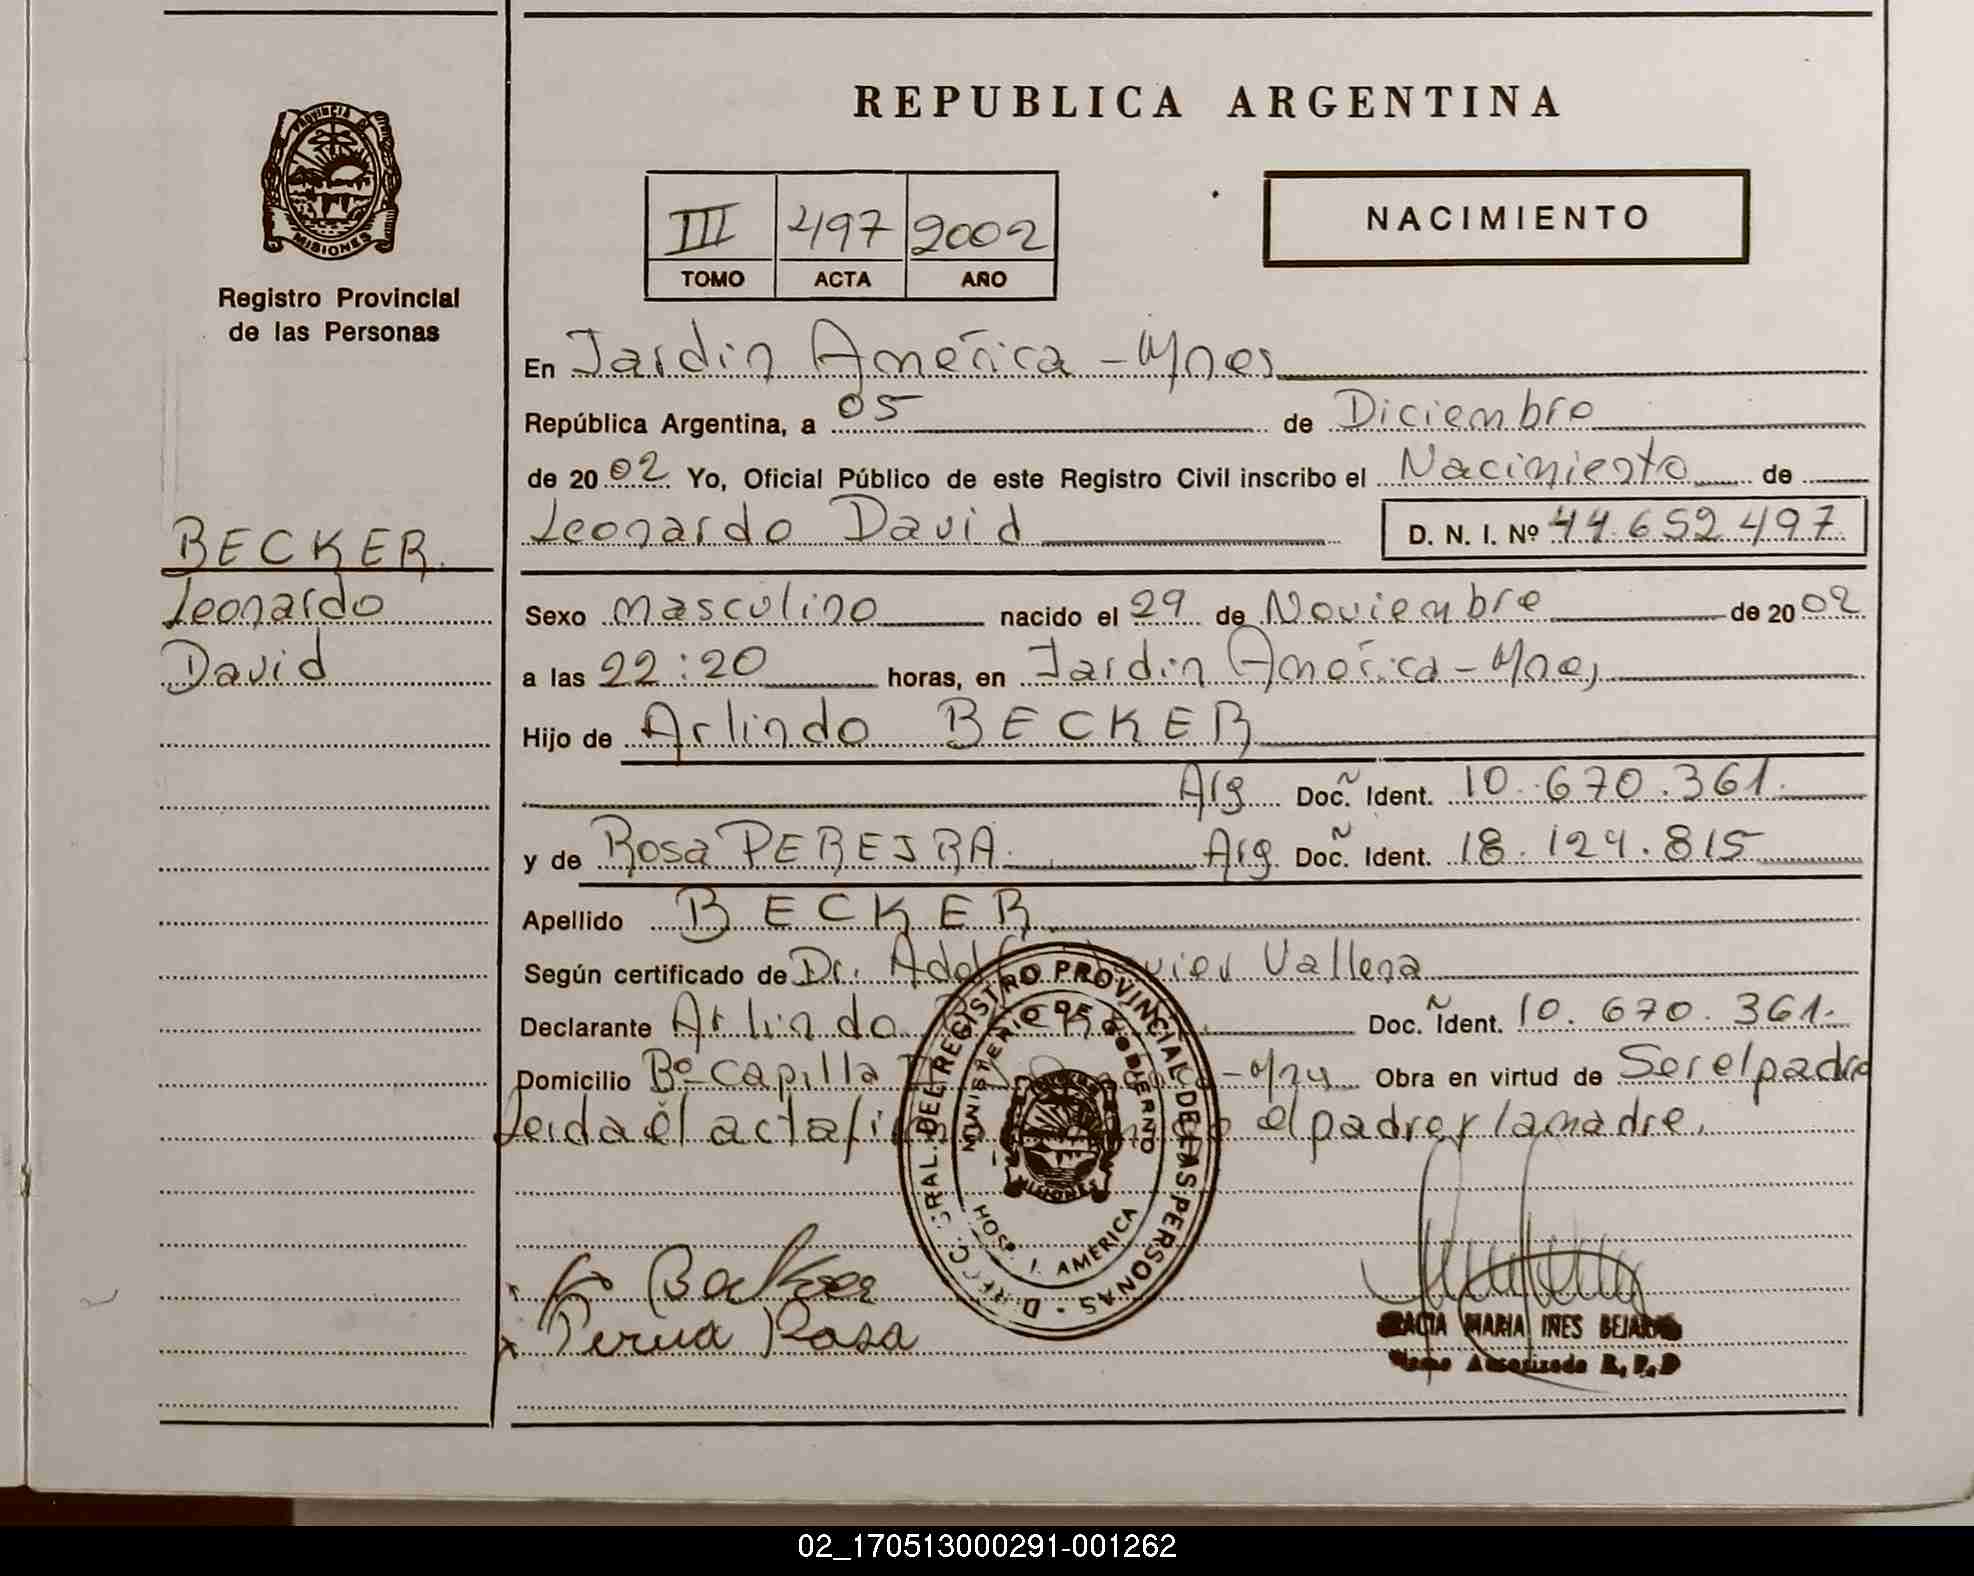 REPUBLICA ARGENTINA
PROVINCIA DE
MISIONES
Registro Provincial
de las Personas
III 497 2002
TOMO ACTA AÑO
NACIMIENTO
En Jardin América - Mnes
República Argentina, a 05 de Diciembre
de 2002 Yo, Oficial Público de este Registro Civil inscribo el Nacimiento de
Leonardo David D. N. I. Nº 44.652.497
BECKER
Leonardo
David
Sexo masculino nacido el 29 de Noviembre de 2002
a las 22:20 horas, en Jardin América - Mnes
Hijo de Arlindo BECKER
Arg Doc. Ident. 10.670.361.
y de Rosa PEREIRA. Arg. Doc. Ident. 18.124.815
Apellido BECKER
Según certificado de Dr. Vallena
Declarante Arlindo Doc. Ident. 10.670.361.
Domicilio Bº Capilla Obra en virtud de Ser el padre
Leida el acta el padre y la madre.
REGISTRO PROVINCIAL DE LAS PERSONAS
MINISTERIO DE GOBIERNO
MISIONES
HOSP. J. AMERICA
Becker
Rosa
MARIA INES
Autorizada R.P.P
02_170513000291-001262